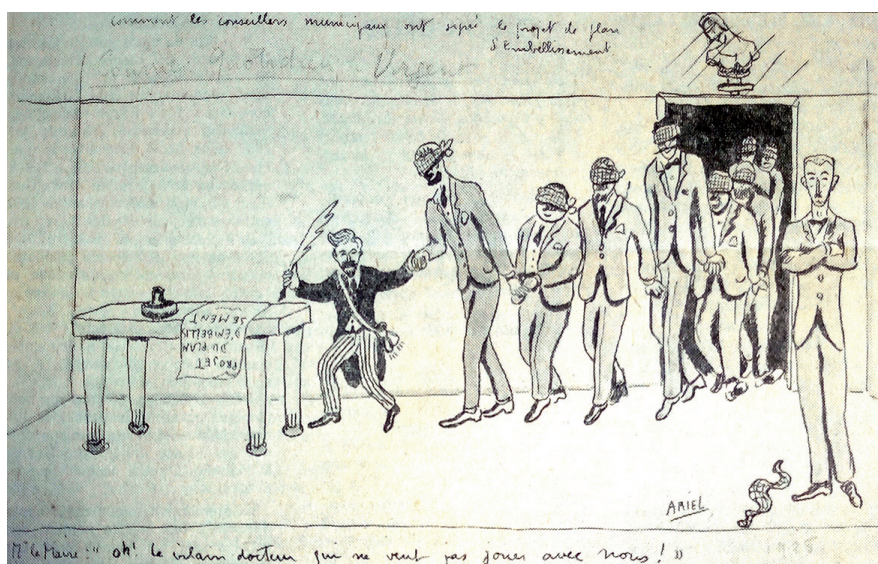 comment les conseillers municipaux ont signé le projet de plan
d'Embellissement
Courrier Quotidien Urgent
PROJET
DU PLAN
D'EMBELLIS
SEMENT
ARIEL
1925
Mr le Maire : " oh ! le vilain docteur qui ne veut pas jouer avec nous ! "